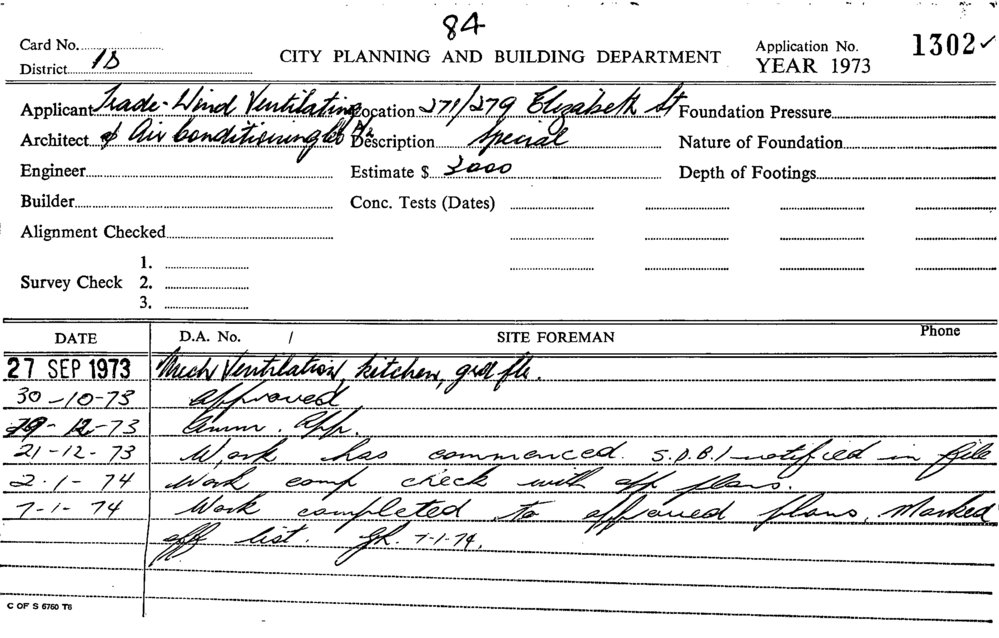 84
Card No.
District 1B
CITY PLANNING AND BUILDING DEPARTMENT
Application No. 1302 ✓
YEAR 1973
Applicant Trade-Wind Ventilating Location 271/279 Elizabeth St Foundation Pressure
Architect & Air Conditioning Co Description Special Nature of Foundation
Engineer Estimate $ 2000 Depth of Footings
Builder Conc. Tests (Dates)
Alignment Checked
1.
Survey Check 2.
3.
DATE D.A. No. / SITE FOREMAN Phone
27 SEP 1973 Mech Ventilation, kitchen, grd flr.
30-10-73 approved
12-73 App.
21-12-73 Work has commenced. S.D.B.I notified in file
2-1-74 Work comp check with app plans.
7-1-74 Work completed to approved plans. Marked
off list. 7-1-74.
C OF S 6760 T6